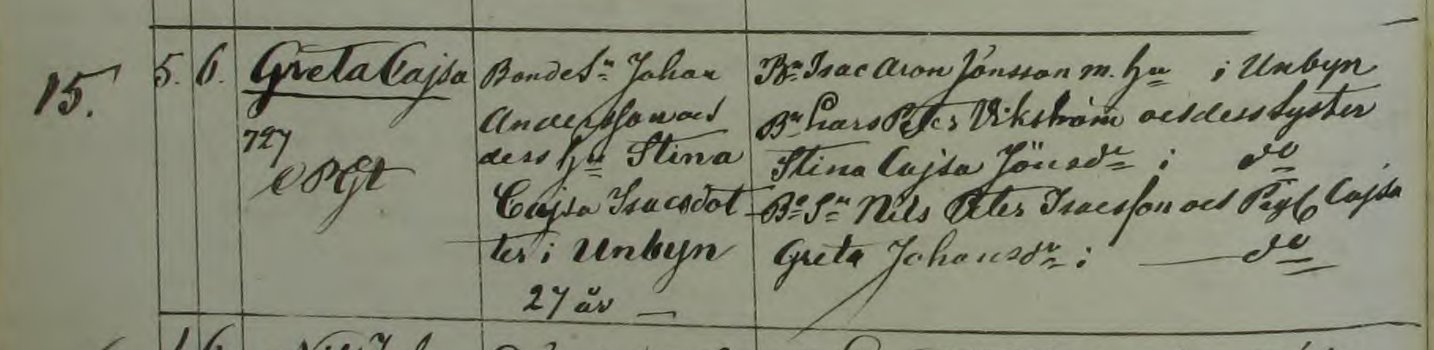 15. 5. 6. Greta Cajsa
727
BondeSn Johan
Andersson och
dess Hu Stina
Cajsa Isacsdot
ter i Unbyn
27 år
Bn Isac Aron Jönsson m. Hu i Unbyn
Bn Lars Peter Vikström och dess Syster
Stina Cajsa Jönsdr i do
Be Sn Nils Peter Isacsson och Pig Cajsa
Greta Johansdr i do